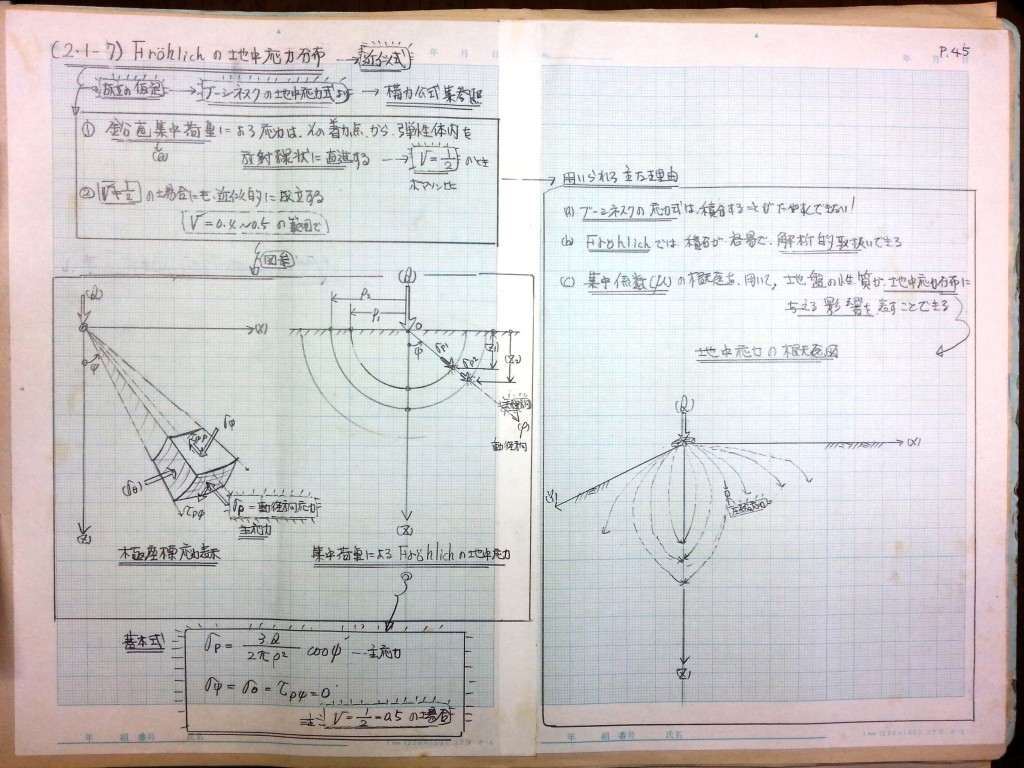 (2・1-7) Fröhlichの地中応力分布 → 近似式
年 月 日
P.45
年 日
ブーシネスクの地中応力式より → 積力公式集参照
① 鉛直集中荷重による応力は、その着力点から、弾性体内を
(Q)
放射線状に直進する → ν=1/2 のとき
ポアソン比
② ν≠1/2 の場合にも、近似的に成立する
(ν=0.4~0.5 の範囲で)
→ 用いられる主な理由
(a) ブーシネスクの応力式は、積分することがたやすくできない!
(b) Fröhlichでは積分が容易で、解析的取扱いできる
(c) 集中係数(μ)の概念を用いて、地盤の性質が地中応力分布に
与える影響を表すことできる
地中応力の概念図
(Q)
(X)
(Y)
(Z)
主応力方向
図解
(Q)
(X)
ψ
σψ
σρ
(σθ)
τρψ
(Z)
σρ=動径方向応力
主応力
極座標応力表示
(Q)
ρ2
ρ1
O
ψ
σρ1
σρ2
(Z1)
(Z2)
(ρ)
動径方向
(Z)
集中荷重によるFröhlichの地中応力
基本式
σρ = 3Q/2πρ² cosψ …主応力
σψ = σθ = τρψ = 0
ν=1/2=0.5 の場合
年 組 番号 氏名
年 組 番号 氏名